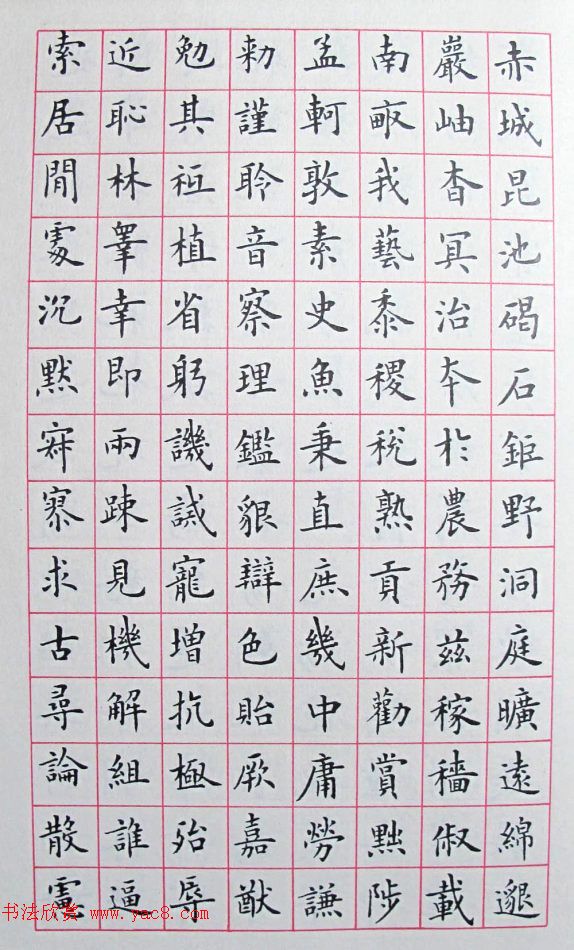 赤城昆池碣石鉅野洞庭曠遠綿邈
巖岫杳冥治夲於農務茲稼穡俶載
南畝我藝黍稷稅熟貢新勸賞黜陟
孟軻敦素史魚秉直庶幾中庸勞謙
勑謹聆音察理鑑貌辯色貽厥嘉猷
勉其祗植省躬譏誡寵增抗極殆辱
近恥林睾幸即兩踈見機解組誰逼
索居閒處沉默寂寥求古尋論散慮
书法欣赏 www.yac8.com